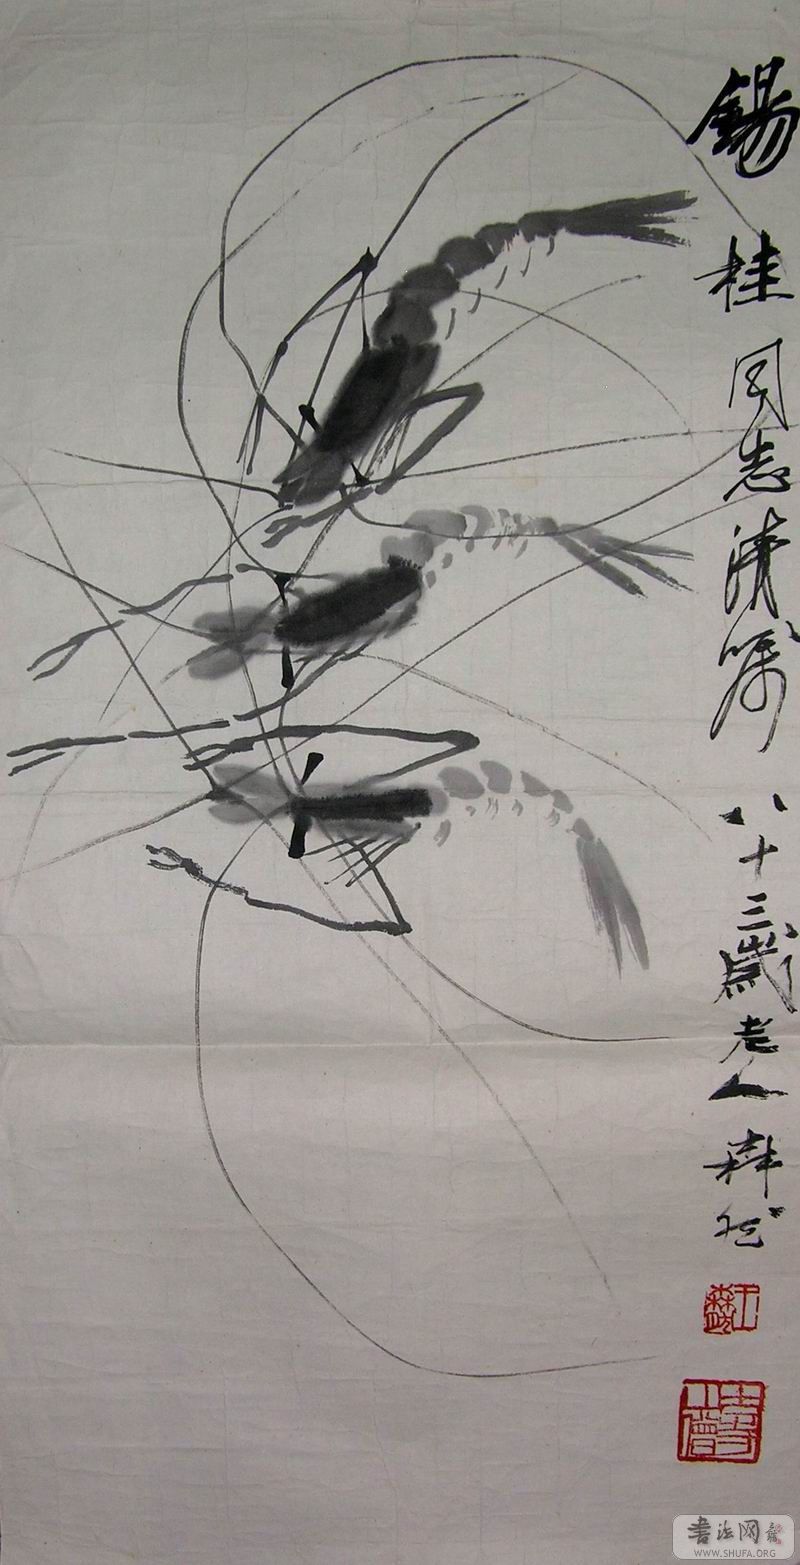 錫桂同志清嘱八十三歲老人森然
王森然
書法网
WWW.SHUFA.ORG